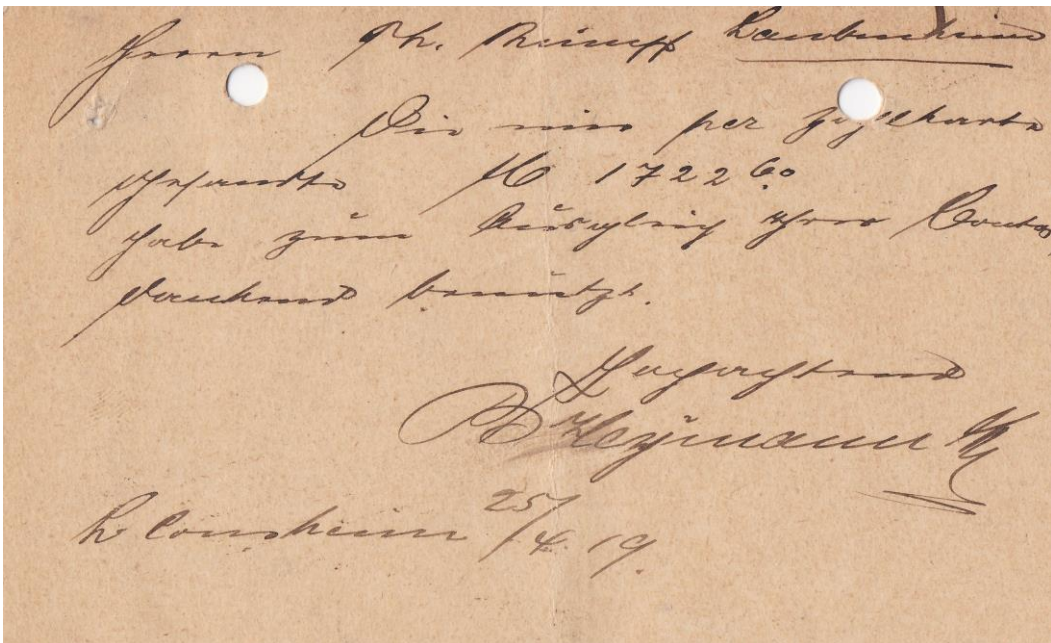 Herrn Ph. Rumpf Laubenheim
Die mir per Zahlkarte
gesandte M 1722 60
habe zum Ausgleich Ihres Contos
dankend benützt.
Hochachtend
Heymann
Kl Consheim 25/4. 19.